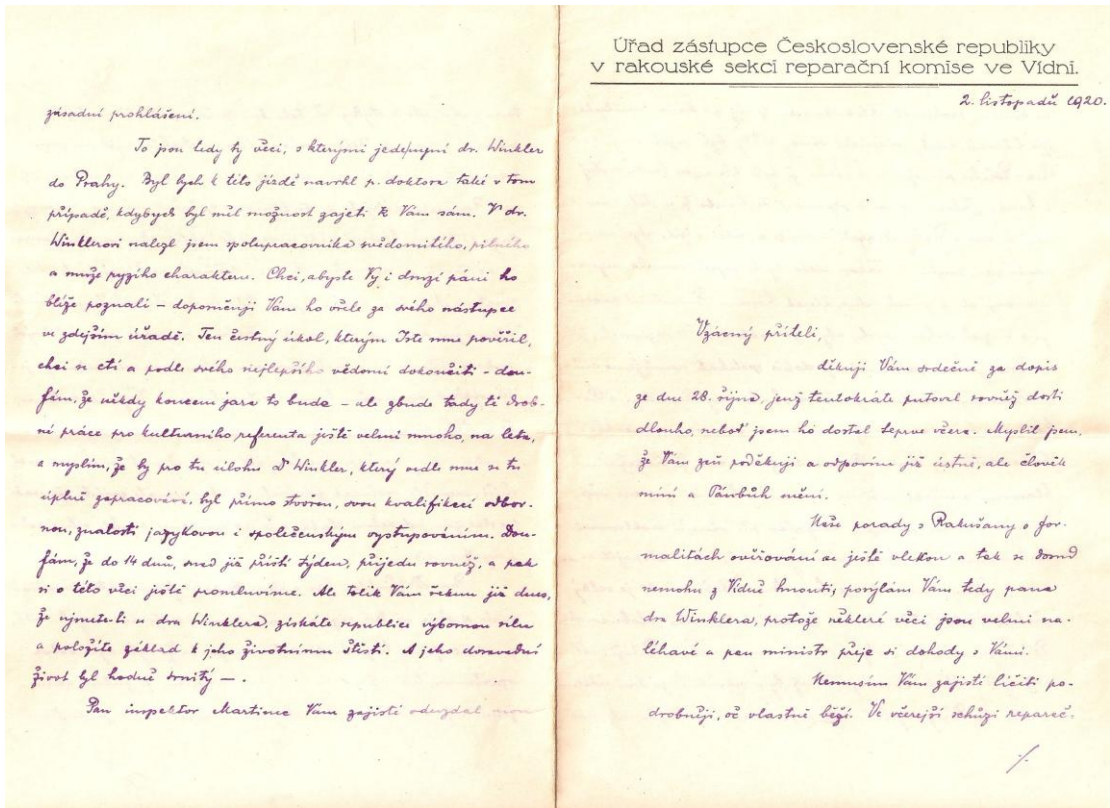 zásadní prohlášení.
To jsou tedy ty věci, s kterými jede nyní dr. Winkler
do Prahy. Byl bych k této jízdě navrhl p. doktora také v tom
případě, kdybych byl měl možnost zajeti k Vám sám. V dr.
Winklerovi nalezl jsem spolupracovníka svědomitého, pilného
a muže ryzího charakteru. Chci, abyste Vy i druzí páni ho
blíže poznali – doporučuji Vám ho vřele za svého nástupce
ve zdejším úřadě. Ten čestný úkol, kterým Jste mne pověřil,
chci se ctí a podle svého nejlepšího vědomí dokončiti – dou-
fám, že někdy koncem jara to bude – ale zbude tady té drob-
né práce pro kulturního referenta ještě velmi mnoho, na leta,
a myslím, že by pro tu úlohu Dr Winkler, který vedle mne se tu
úplně zapracovává, byl přímo stvořen, svou kvalifikací odbor-
nou, znalostí jazykovou i společenským vystupováním. Dou-
fám, že do 14 dnů, snad již příští týden, přijedu rovněž, a pak
si o této věci ještě promluvíme. Ale tolik Vám řeknu již dnes,
že ujmete-li se dra Winklera, získáte republice výbornou sílu
a položíte základ k jeho životnímu štěstí. A jeho dosavadní
život byl hodně trnitý —.
Pan inspektor Martinec Vám zajisté odevzdal mou
Úřad zástupce Československé republiky
v rakouské sekci reparační komise ve Vídni.
2. listopadu 1920.
Vzácný příteli,
děkuji Vám srdečně za dopis
ze dne 28. října, jenž tentokráte putoval rovněž dosti
dlouho, neboť jsem ho dostal teprve včera. Myslil jsem,
že Vám zaň poděkuji a odpovím již ústně, ale člověk
míní a Pánbůh mění.
Naše porady s Rakušany o for-
malitách ověřování se ještě vlekou a tak se dosud
nemohu z Vídně hnouti; posýlám Vám tedy pana
dra Winklera, protože některé věci jsou velmi na-
léhavé a pan ministr přeje si dohody s Vámi.
Nemusím Vám zajisté líčiti po-
drobněji, oč vlastně běží. Ve včerejší schůzi reparač.
./.